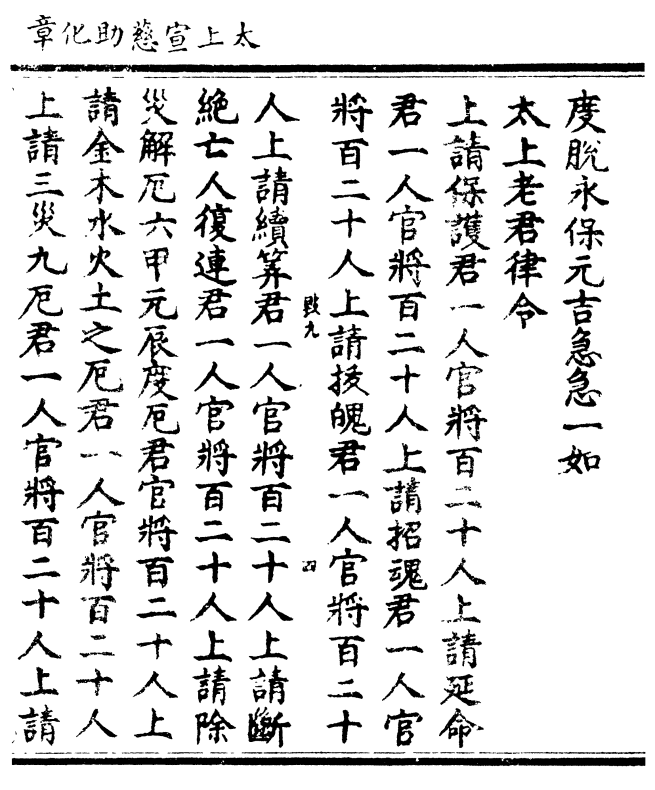 太上宣慈助化章
度脫永保元吉急急一如
太上老君律令
上請保護君一人官將百二十人上請延命
君一人官將百二十人上請招魂君一人官
將百二十人上請拔魄君一人官將百二十
毀九 四
人上請續筭君一人官將百二十人上請斷
絶亡人復連君一人官將百二十人上請除
災解厄六甲元辰度厄君官將百二十人上
請金木水火土之厄君一人官將百二十人
上請三災九厄君一人官將百二十人上請